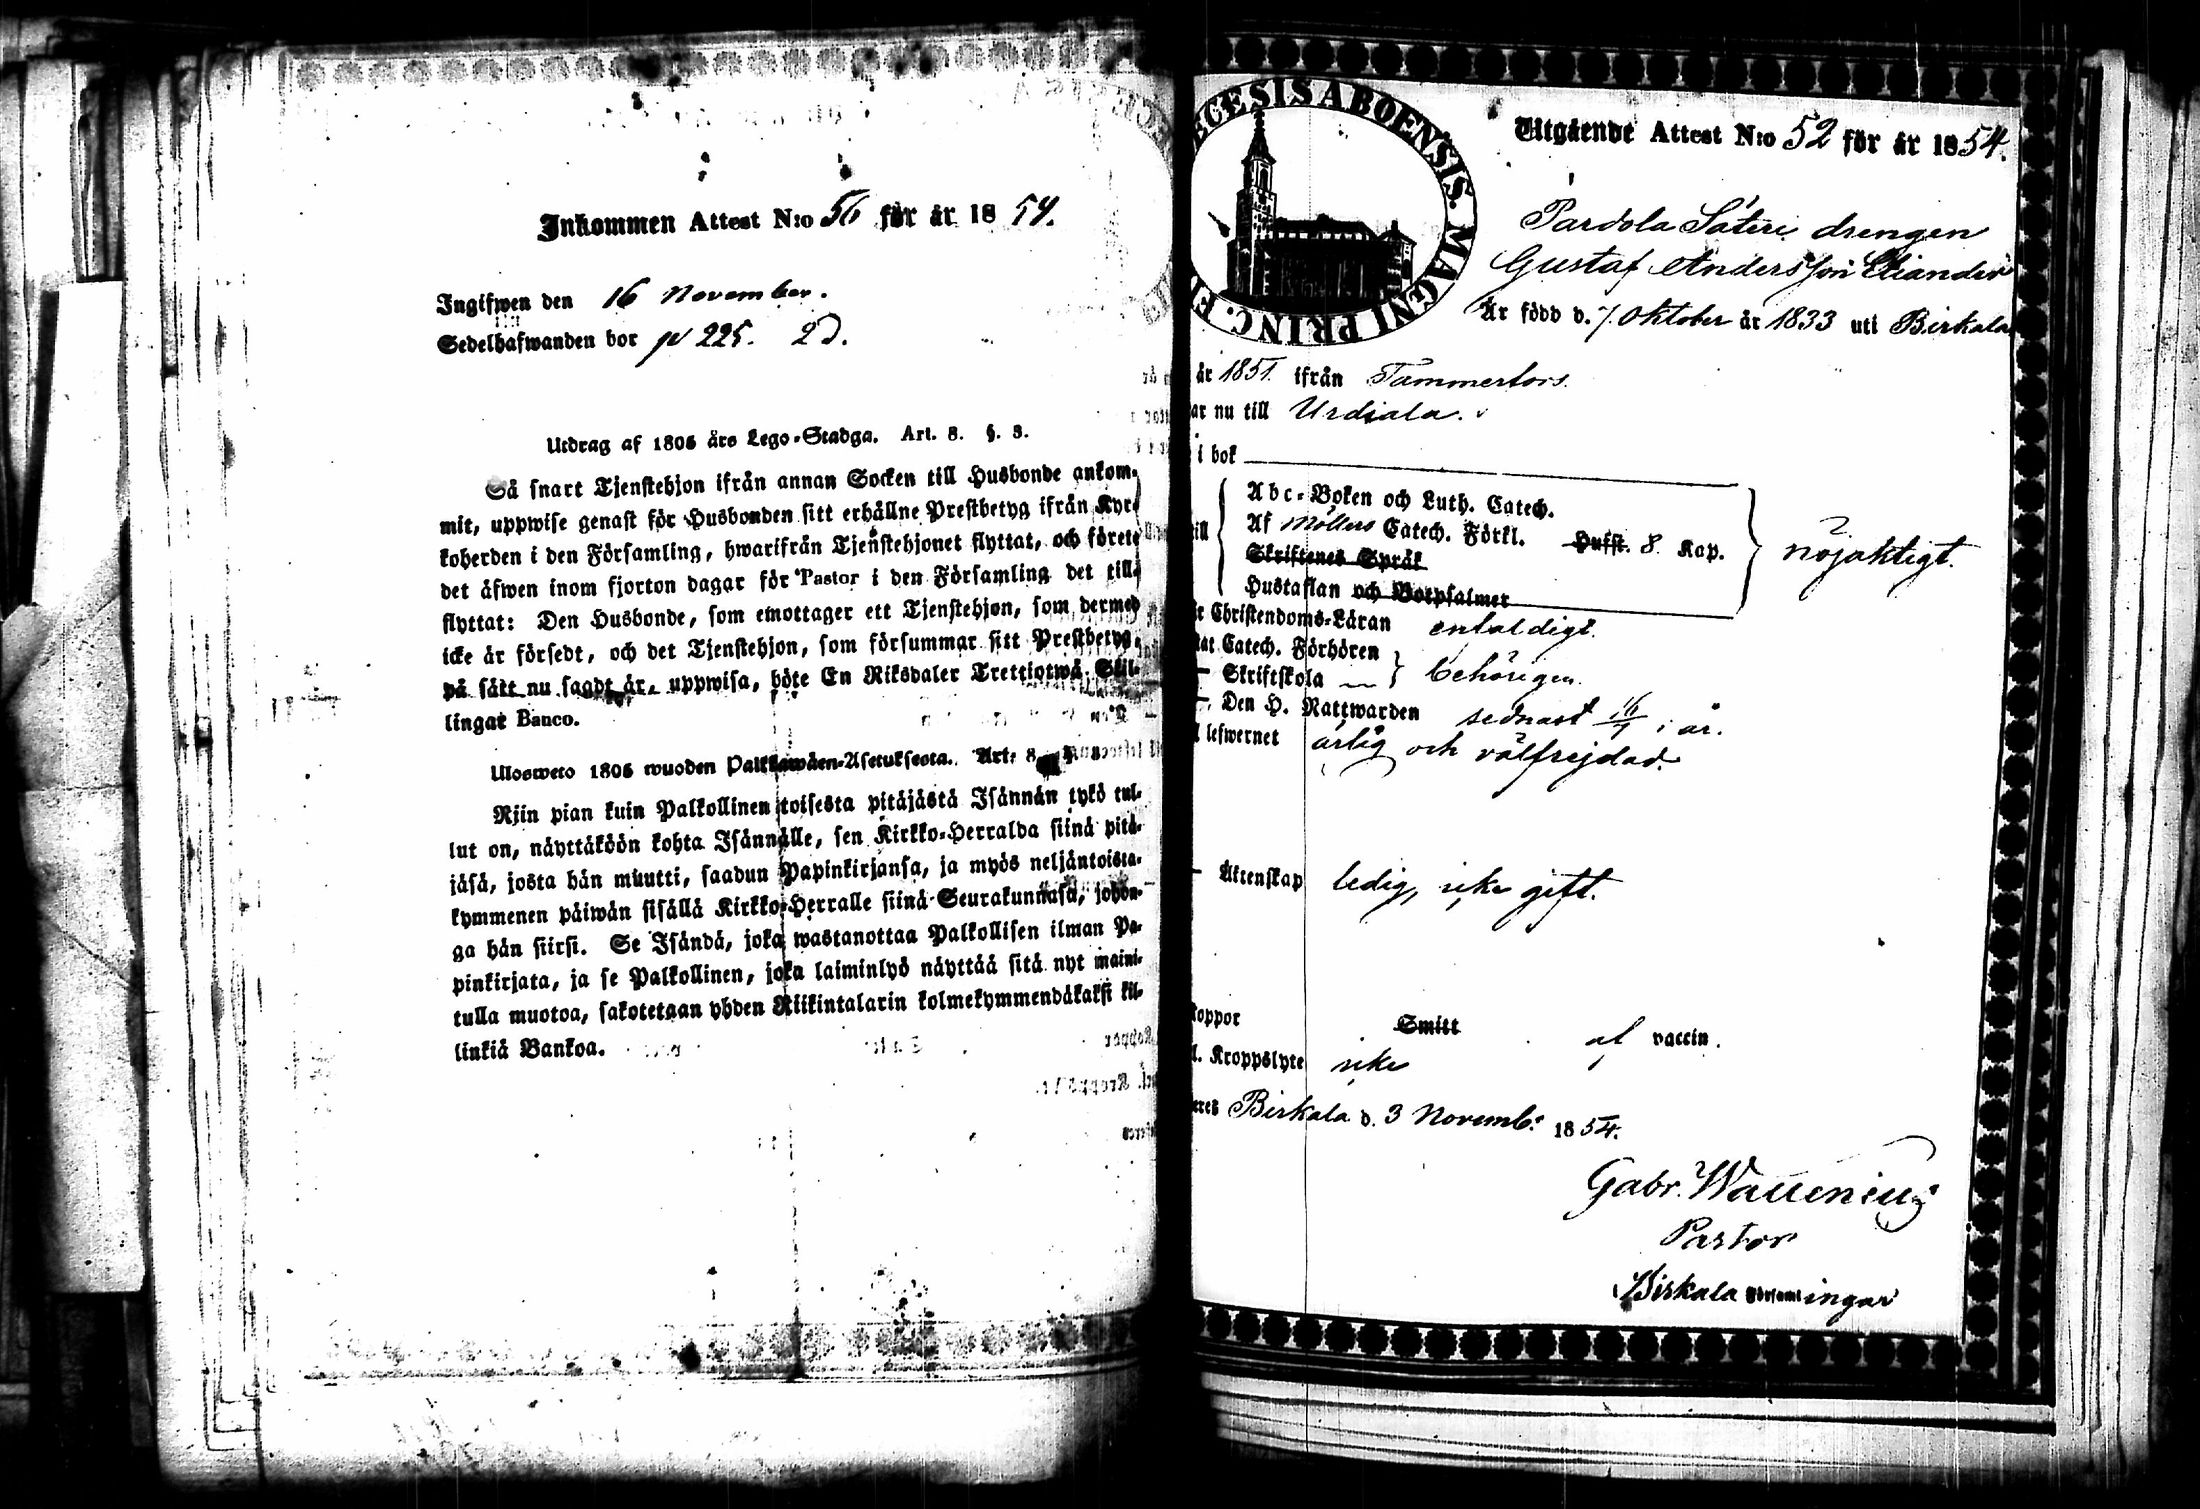 Inkommen Attest N:o 56 för år 1854.
Ingifwen den 16 November.
Sedelhafwanden bor p 225. 2).
Utdrag af 1805 års Lego-Stadga. Art. 8. §. 3.
Så snart Tjenstehjon ifrån annan Socken till Husbonde ankom-
mit, uppwise genast för Husbonden sitt erhållne Prestbetyg ifrån Kyr-
koherden i den Församling, hwarifrån Tjenstehjonet flyttat, och förete
det äfwen inom fjorton dagar för Pastor i den Församling det till-
flyttat: Den Husbonde, som emottager ett Tjenstehjon, som dermed
icke är försedt, och det Tjenstehjon, som försummar sitt Prestbetyg,
på sätt nu sagdt är, uppwisa, böte En Riksdaler Trettiotwå Skil-
lingar Banco.
Ulosweto 1805 wuoden Palkkawäen-Asetuksesta. Art: 8
Niin pian kuin Palkollinen toisesta pitäjästä Isännän tykö tul-
lut on, näyttäköön kohta Isännälle, sen Kirkko-Herralda siinä pitä-
jäsä, josta hän muutti, saadun Papinkirjansa, ja myös neljäntoista-
kymmenen päiwän sisällä Kirkko-Herralle siinä Seurakunnasa, johon-
ga hän siirsi. Se Isändä, joka wastanottaa Palkollisen ilman Pa-
pinkirjata, ja se Palkollinen, joka laiminlyö näyttää sitä nyt maini-
tulla muotoa, sakotetaan yhden Riikintalarin kolmekymmendäkaksi kil-
linkiä Bankoa.
ECESIS ABOENSIS. MAGNI PRINC. F
Utgående Attest N:o 52 för år 1854.
Pardola Säteri drengen
Gustaf Andersson Eliander
Är född d. 7 Oktober år 1833 uti Birkala
år 1851 ifrån Tammerfors
ar nu till Urdiala.
i bok
Abc-Boken och Luth. Catech.
Af Möllers Catech. Förkl. Hufst. 8 Kap.
Skriftenes Språk
Hustaflan och Botpsalmer
nöjaktigt.
Christendoms-Läran enfaldigt.
at Catech. Förhören
Skriftskola
behörigen.
Den H. Nattwarden sednast 16/7 i år.
lefwernet ärlig och välfrejdad.
Äktenskap ledig, icke gift.
koppor Smitt af vaccin.
l. Kroppslyte icke
eres Birkala d. 3 Novemb: 1854.
Gabr. Wallenius
Pastor
Birkala Församlingar